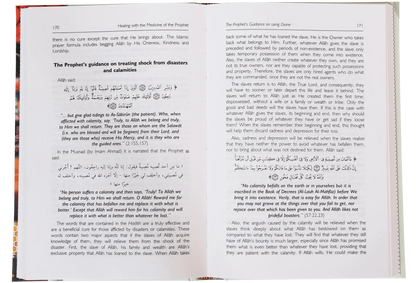 170
Healing with the Medicine of the Prophet
there is no cure except the cure that He brings about. The Islamic
prayer formula includes begging Allâh by His Oneness, Kindness and
Lordship.
The Prophet's guidance on treating shock from disasters
and calamities
Allâh said:
"... but give glad tidings to As-Sâbirûn (the patient). Who, when
afflicted with calamity, say: 'Truly, to Allâh we belong and truly,
to Him we shall return.' They are those on whom are the Salawât
(i.e. who are blessed and will be forgiven) from their Lord, and
(they are those who) receive His Mercy, and it is they who are
the guided ones." (2:155,157)
In the Musnad (by Imam Ahmad), it is narrated that the Prophet
said:
"No person suffers a calamity and then says, 'Truly! To Allâh we
belong and truly, to Him we shall return. O Allâh! Reward me for
the calamity that has befallen me and replace it with what is
better.' Except that Allâh will reward him for his calamity and will
replace it with what is better than whatever he lost."
The words that are contained in the Hadîth are a truly effective and
are a beneficial cure for those afflicted by disasters or calamities. These
words contain two major aspects that if the slaves of Allâh acquire
knowledge of them, they will relieve them from the shock of the
disaster. First, the slave of Allâh, his family and wealth are Allâh's
exclusive property that Allâh has loaned to the slave. When Allâh takes
The Prophet's Guidance on using Divine
171
back some of what he has loaned the slave, He is the Owner who takes
back what belongs to Him. Further, whatever Allâh gives the slave is
preceded and followed by periods of non-existence, and the slave only
takes temporary possession of them when they come into existence.
Also, the slaves of Allâh neither create whatever they own, and they are
not its true owners, nor are they capable of protecting such possessions
and property. Therefore, the slaves are only hired agents who do what
they are commanded, since they are not the real owners.
The slaves return is to Allâh, the True Lord, and consequently, they
will have to sooner or later depart this life and leave it behind. The
slaves will return to Allâh just as He created them the first time:
dispossessed, without a wife or a family or wealth or tribe. Only the
good and bad deeds will the slaves have then. If this is the case with
whatever Allâh gives the slave, its beginning and end, then why should
the slaves be proud of whatever they have or get sad if they loose
them? When the slaves remember their beginning and end, this thought
will help them discard sadness and depression for their loss.
Also, sadness and depression will be relieved when the slaves realize
that they have neither the power to avoid whatever has befallen them,
nor to bring about what was not destined for them. Allâh said:
"No calamity befalls on the earth or in yourselves but it is
inscribed in the Book of Decrees (Al-Lauh Al-Mahfûz) before We
bring it into existence. Verily, that is easy for Allâh. In order that
you may not grieve at the things over that you fail to get, nor
rejoice over that which has been given to you. And Allâh likes not
prideful boasters." (57:22,23)
Also, the anguish caused by the calamity will be relieved when the
slaves think deeply about what Allâh has bestowed on them as
compared to what they have lost. They will find that whatever they still
have of Allâh's bounty is much larger, especially since Allâh has promised
them what is even better than whatever they have lost, providing that
they are patient with the calamity. If Allâh wills, He could make the